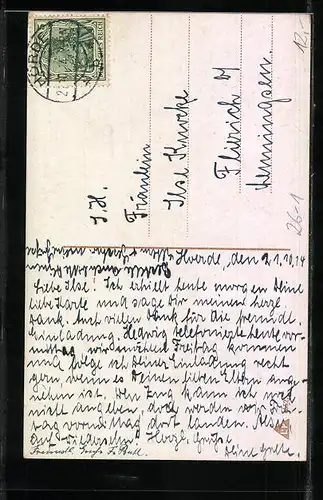 HÖRDE
12,-
S. H.
Fräulein
Ilse Knocke
Flierich
Henningsen.
26-1
Hoerde, den 21.10.14
Liebe Ilse! Ich erhielt heute morgen Deine
liebe Karte und sage Dir meinen herzl.
Dank. Auch vielen Dank für die freundl.
Einladung. Hedwig telefonierte heute vor-
mittag, wir möchten Freitag kommen
und folge ich Deiner Einladung recht
gern wenn es Deinen lieben Eltern ange-
nehm ist. Den Zug kann ich noch
nicht angeben, doch werden wir Frei-
tag vormittag dort landen. Also
auf Wiedersehn! Herzl. Grüße
Deine Grete.